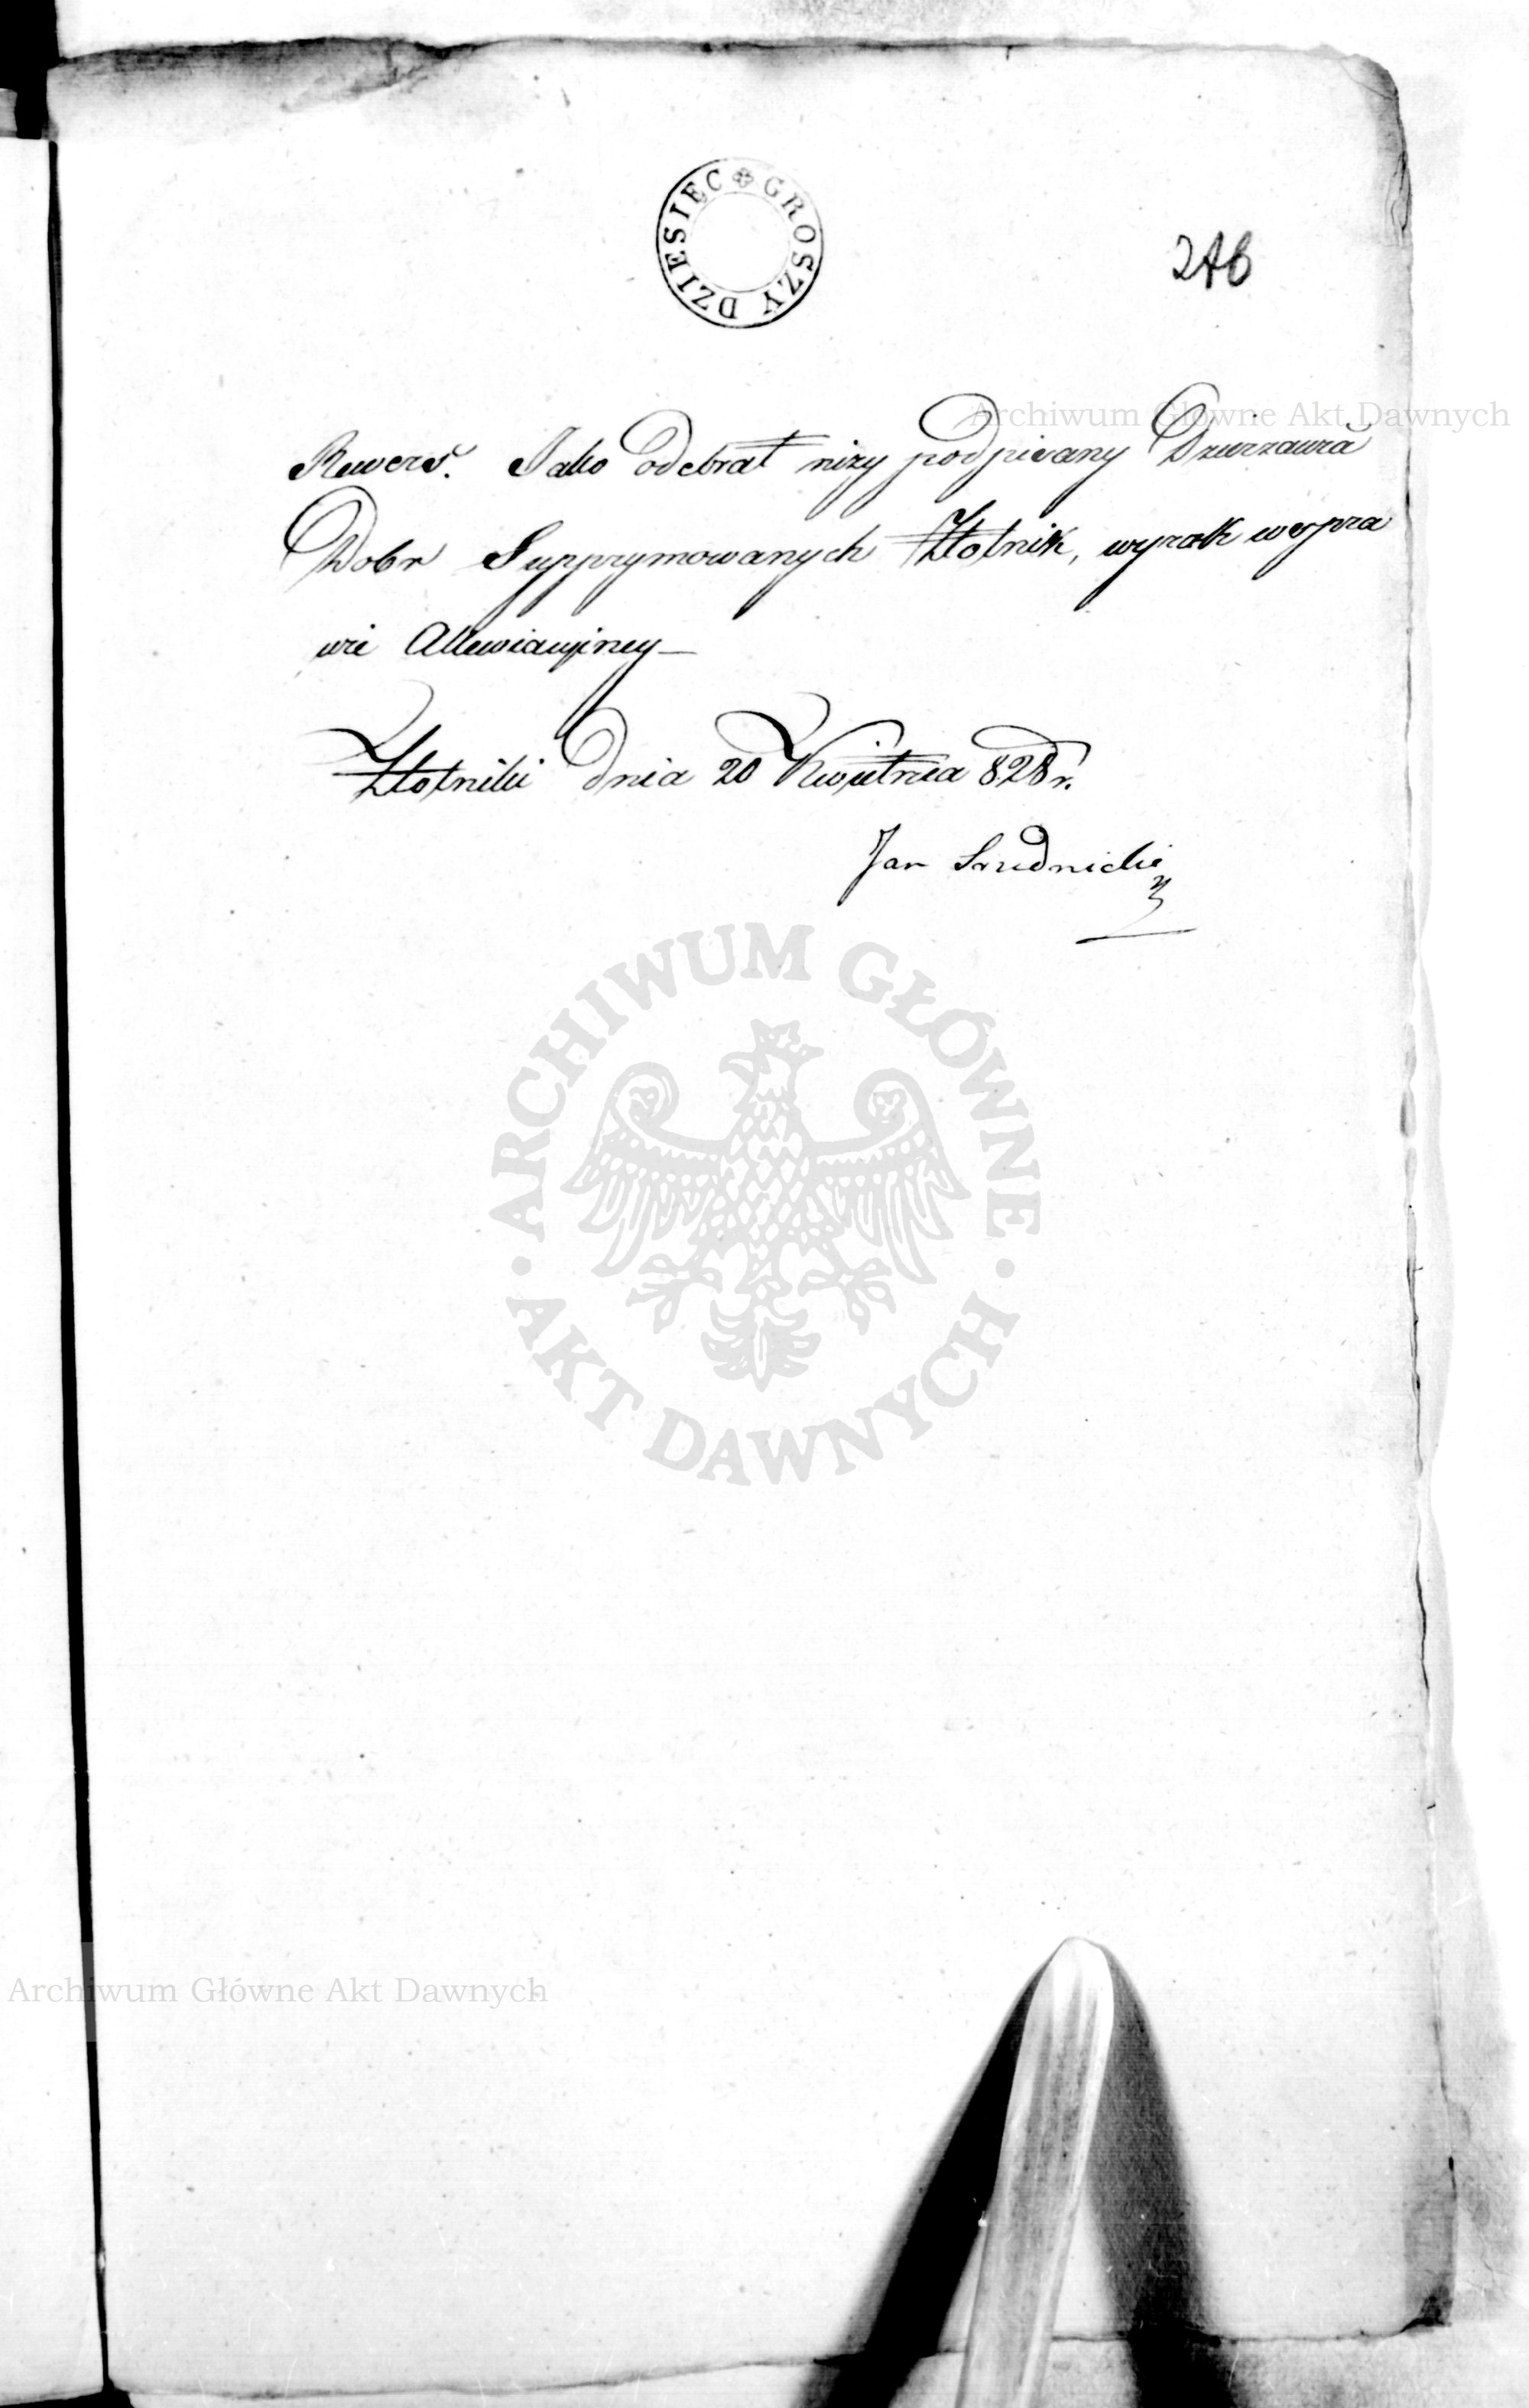 DZIESIEC GROSZY
246
Archiwum Główne Akt Dawnych
Rewers. Jako odebrał niży podpisany Dzierzawca
Dobr Supprymowanych Złotnik, wyrok wespra
wie Allewiacyiney
Złotniki dnia 20 Kwietnia 828 r.
Jan
ARCHIWUM GŁÓWNE
AKT DAWNYCH
Archiwum Główne Akt Dawnych